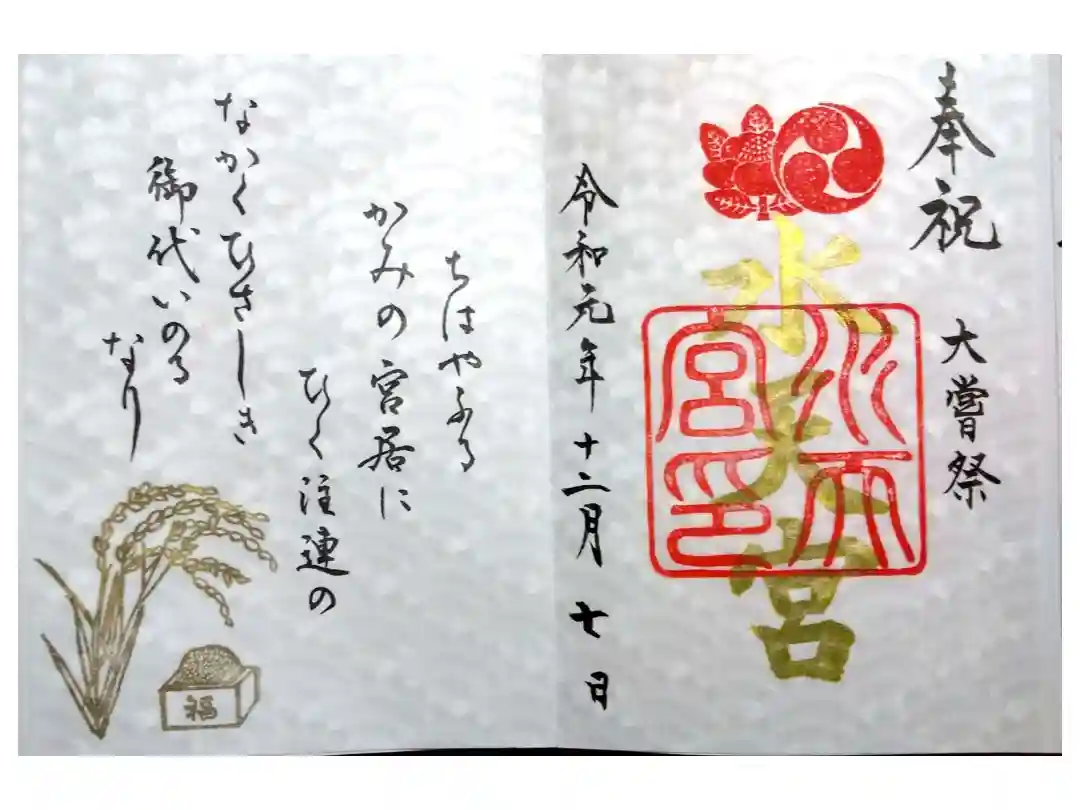 奉祝 大嘗祭
水天宮
水天宮印
令和元年 十二月 七日
ちはやふる
かみの宮居に
ひく注連の
なかくひさしき
御代いのる
なり
福